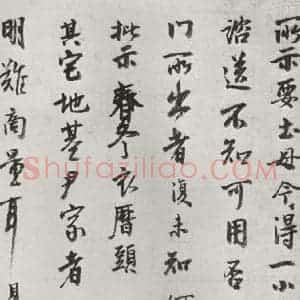 所示要土母今得一小
諮送不知可用否
门所出者復未知
批示春冬衣曆頭
其它地基尹家者
明難商量耳
Shufaziliao.com